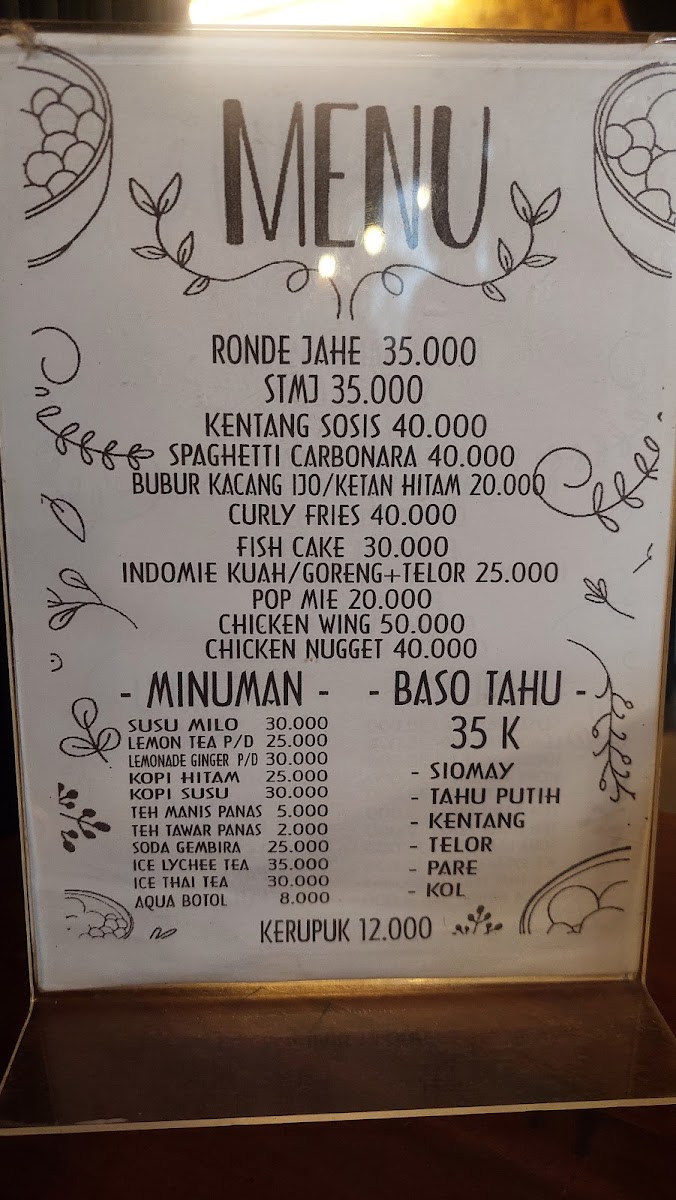 MENU
RONDE JAHE 35.000
STMJ 35.000
KENTANG SOSIS 40.000
SPAGHETTI CARBONARA 40.000
BUBUR KACANG IJO/KETAN HITAM 20.000
CURLY FRIES 40.000
FISH CAKE 30.000
INDOMIE KUAH/GORENG+TELOR 25.000
POP MIE 20.000
CHICKEN WING 50.000
CHICKEN NUGGET 40.000
- MINUMAN -
SUSU MILO 30.000
LEMON TEA P/D 25.000
LEMONADE GINGER P/D 30.000
KOPI HITAM 25.000
KOPI SUSU 30.000
TEH MANIS PANAS 5.000
TEH TAWAR PANAS 2.000
SODA GEMBIRA 25.000
ICE LYCHEE TEA 35.000
ICE THAI TEA 30.000
AQUA BOTOL 8.000
- BASO TAHU -
35 K
- SIOMAY
- TAHU PUTIH
- KENTANG
- TELOR
- PARE
- KOL
KERUPUK 12.000